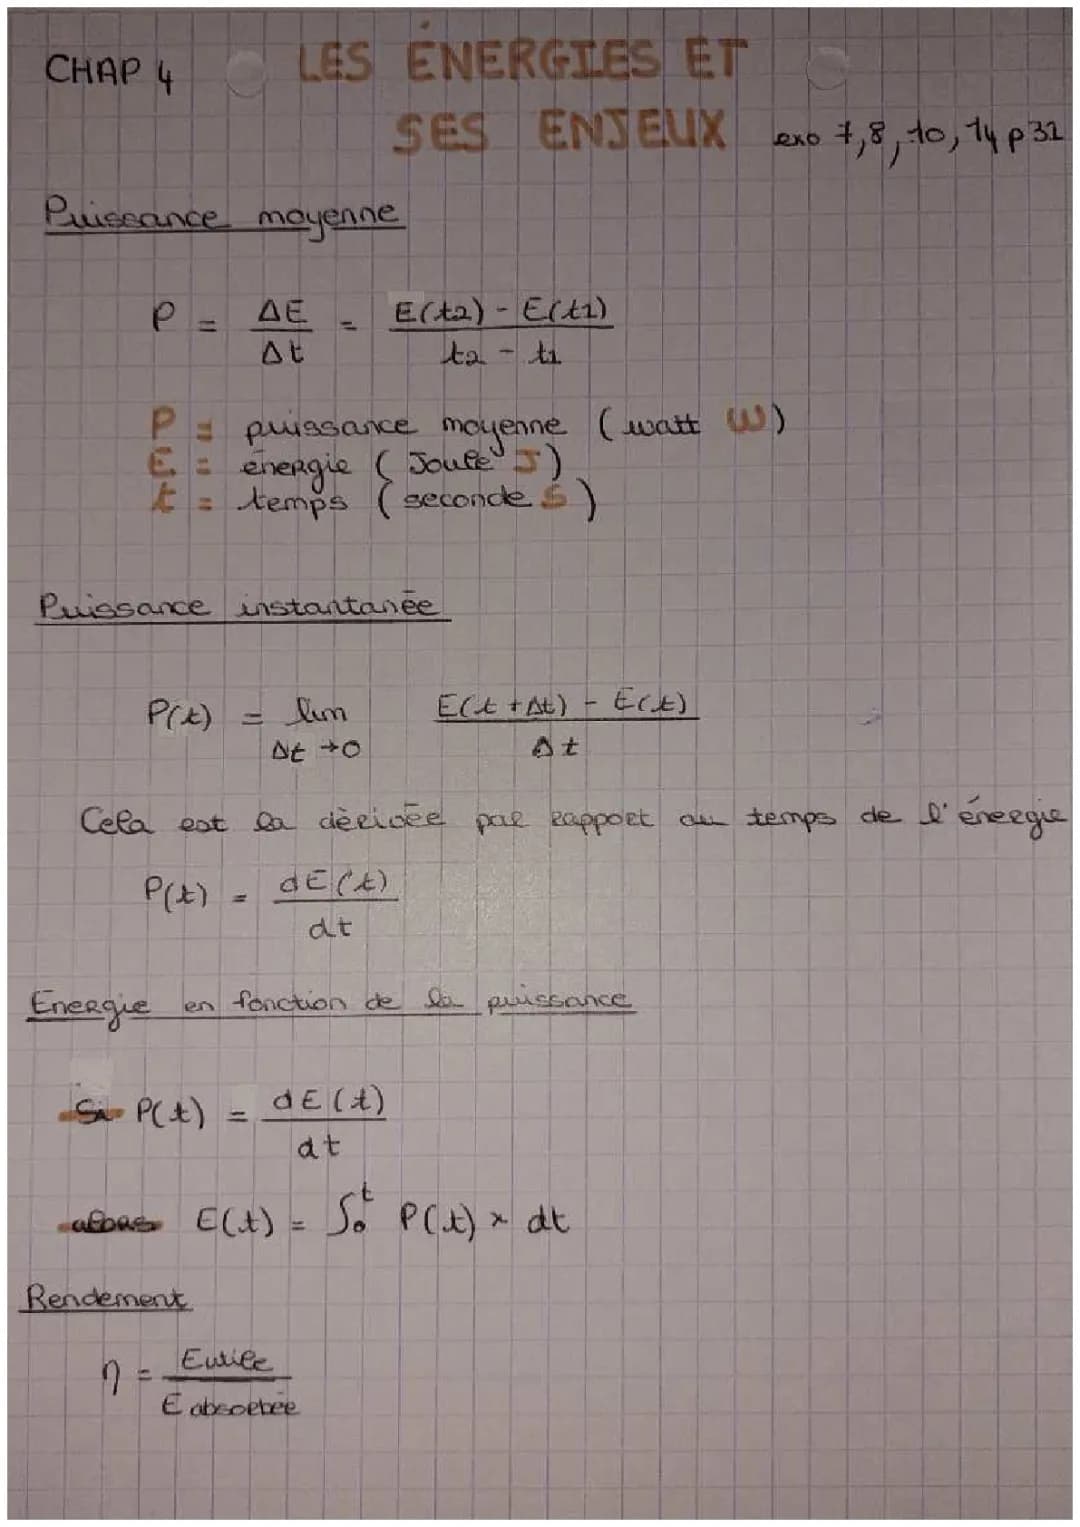 CHAP 4 LES ÉNERGIES ET
SES ENJEUX exo 7,8,10,14 p32
Puissance moyenne
P = ΔE/Δt = E(t2) - E(t1)/t2 - t1
P = puissance moyenne (watt W)
E = énergie (Joule J)
t = temps (seconde S)
Puissance instantanée
P(t) = lim Δt→0 E(t+Δt) - E(t)/Δt
Cela est la dérivée par rapport au temps de l'énergie
P(t) = dE(t)/dt
Energie en fonction de la puissance
Si P(t) = dE(t)/dt
alors E(t) = ∫₀ᵗ P(t) × dt
Rendement
η = Eutile/E absorbée